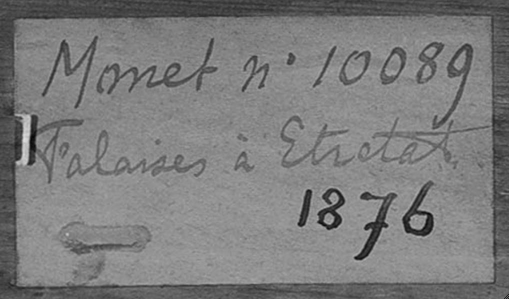 Monet n° 10089
Falaises à Etretat.
1876